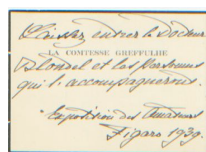 Laissez entrer le Docteur
LA COMTESSE GREFFULHE
Blondel et les personnes
qui l'accompagneront.
Exposition des Amateurs
Figaro 1939.